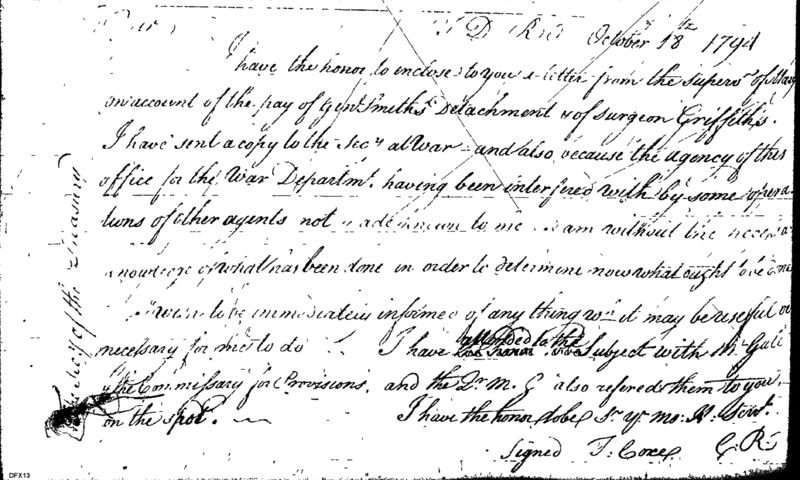 T D R.O. October 18th 1794
I have the honor to enclose to you a letter from the superv.r of
on account of the pay of Genl. Smith's Detachment & of Surgeon Griffiths.
I have sent a copy to the Secy at War and also because the agency of this
office for the War Departmt. having been interfered with by some opera
tions of other agents not made known to me I am without the necessa
knowledge of what has been done in order to determine now what ought to be done
I wish to be immediately informed of any thing wch it may be useful or
necessary for me to do I have attended to the Subject with Mr Gale
the Commissary for Provisions, and the Qr M. G also refered them to you
on the spot. I have the honor to be Sr. yr. mo. H. Servt.
Signed T. Coxe C. R.
the Secy of the Treasury
DFX13